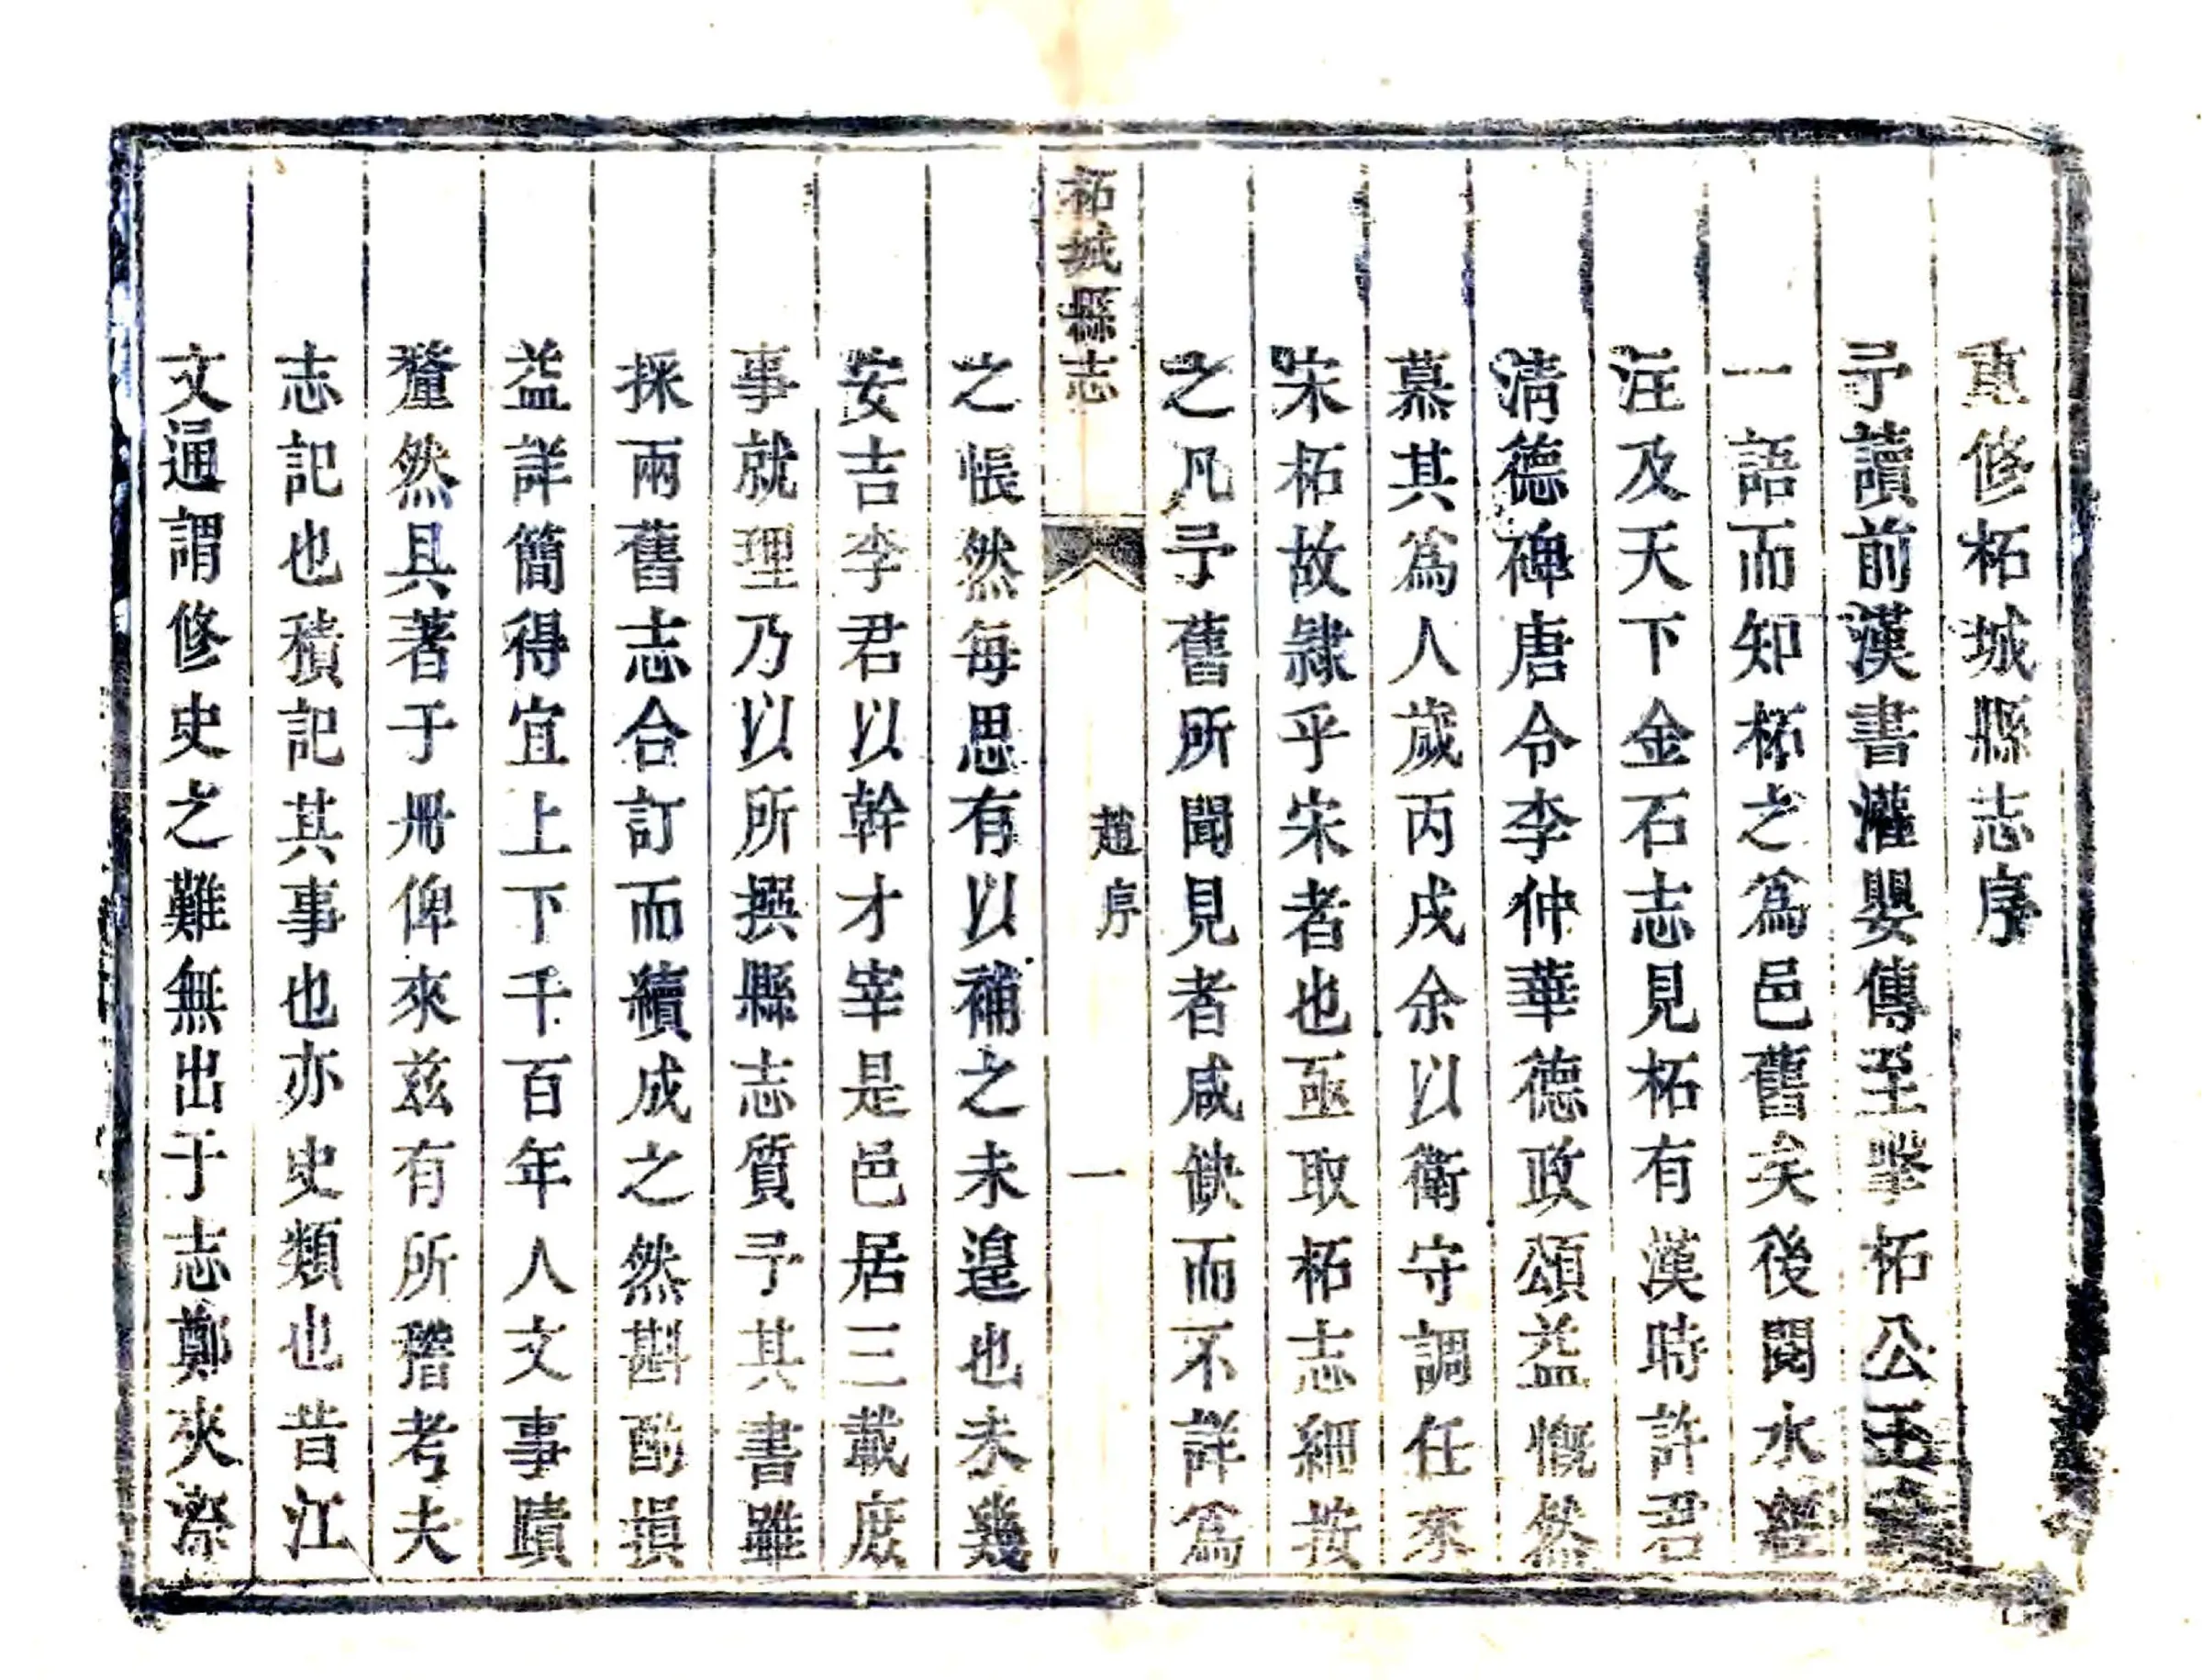 重修柘城縣志序
予讀前漢書灌嬰傳至擊柘公王
一語而知柘之爲邑舊矣後閱水經
注及天下金石志見柘有漢時許君
淸德碑唐令李仲華德政頌益慨然
慕其爲人歲丙戌余以衛守調任來
宋柘故隸乎宋者也亟取柘志細按
之凡予舊所聞見者咸缺而不詳爲
柘城縣志
趙序
一
之悵然每思有以補之未遑也未幾
安吉李君以幹才宰是邑居三載庶
事就理乃以所撰縣志質予其書雖
採兩舊志合訂而續成之然斟酌損
益詳簡得宜上下千百年人文事蹟
釐然具著于册俾來兹有所稽考夫
志記也積記其事也亦史類也昔江
文通謂修史之難無出于志鄭夾漈